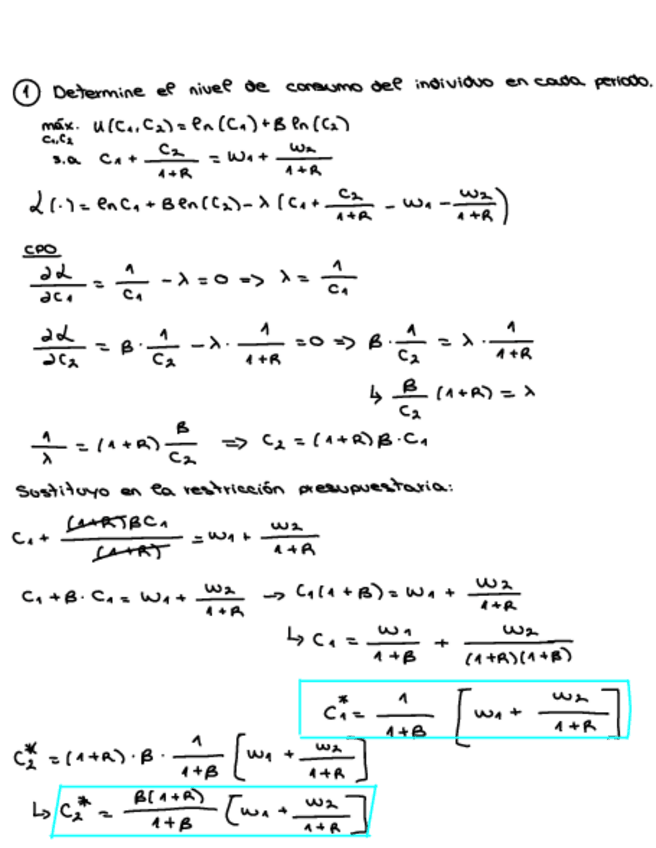 ① Determine el nivel de consumo del individuo en cada periodo.
máx. U(C₁,C₂) = ln(C₁) + B ln(C₂)
C₁,C₂
s.a C₁ + C₂/(1+R) = W₁ + W₂/(1+R)
ℒ(·) = ln C₁ + B ln(C₂) - λ (C₁ + C₂/(1+R) - W₁ - W₂/(1+R))
CPO
∂ℒ/∂C₁ = 1/C₁ - λ = 0 => λ = 1/C₁
∂ℒ/∂C₂ = B · 1/C₂ - λ · 1/(1+R) = 0 => B · 1/C₂ = λ · 1/(1+R)
↳ B/C₂ (1+R) = λ
1/λ = (1+R) B/C₂ => C₂ = (1+R) B · C₁
Sustituyo en la restricción presupuestaria:
C₁ + (1+R)BC₁/(1+R) = W₁ + W₂/(1+R)
C₁ + B · C₁ = W₁ + W₂/(1+R) → C₁(1+B) = W₁ + W₂/(1+R)
↳ C₁ = W₁/(1+B) + W₂/((1+R)(1+B))
C₁* = 1/(1+B) [W₁ + W₂/(1+R)]
C₂* = (1+R) · B · 1/(1+B) [W₁ + W₂/(1+R)]
↳ C₂* = B(1+R)/(1+B) [W₁ + W₂/(1+R)]